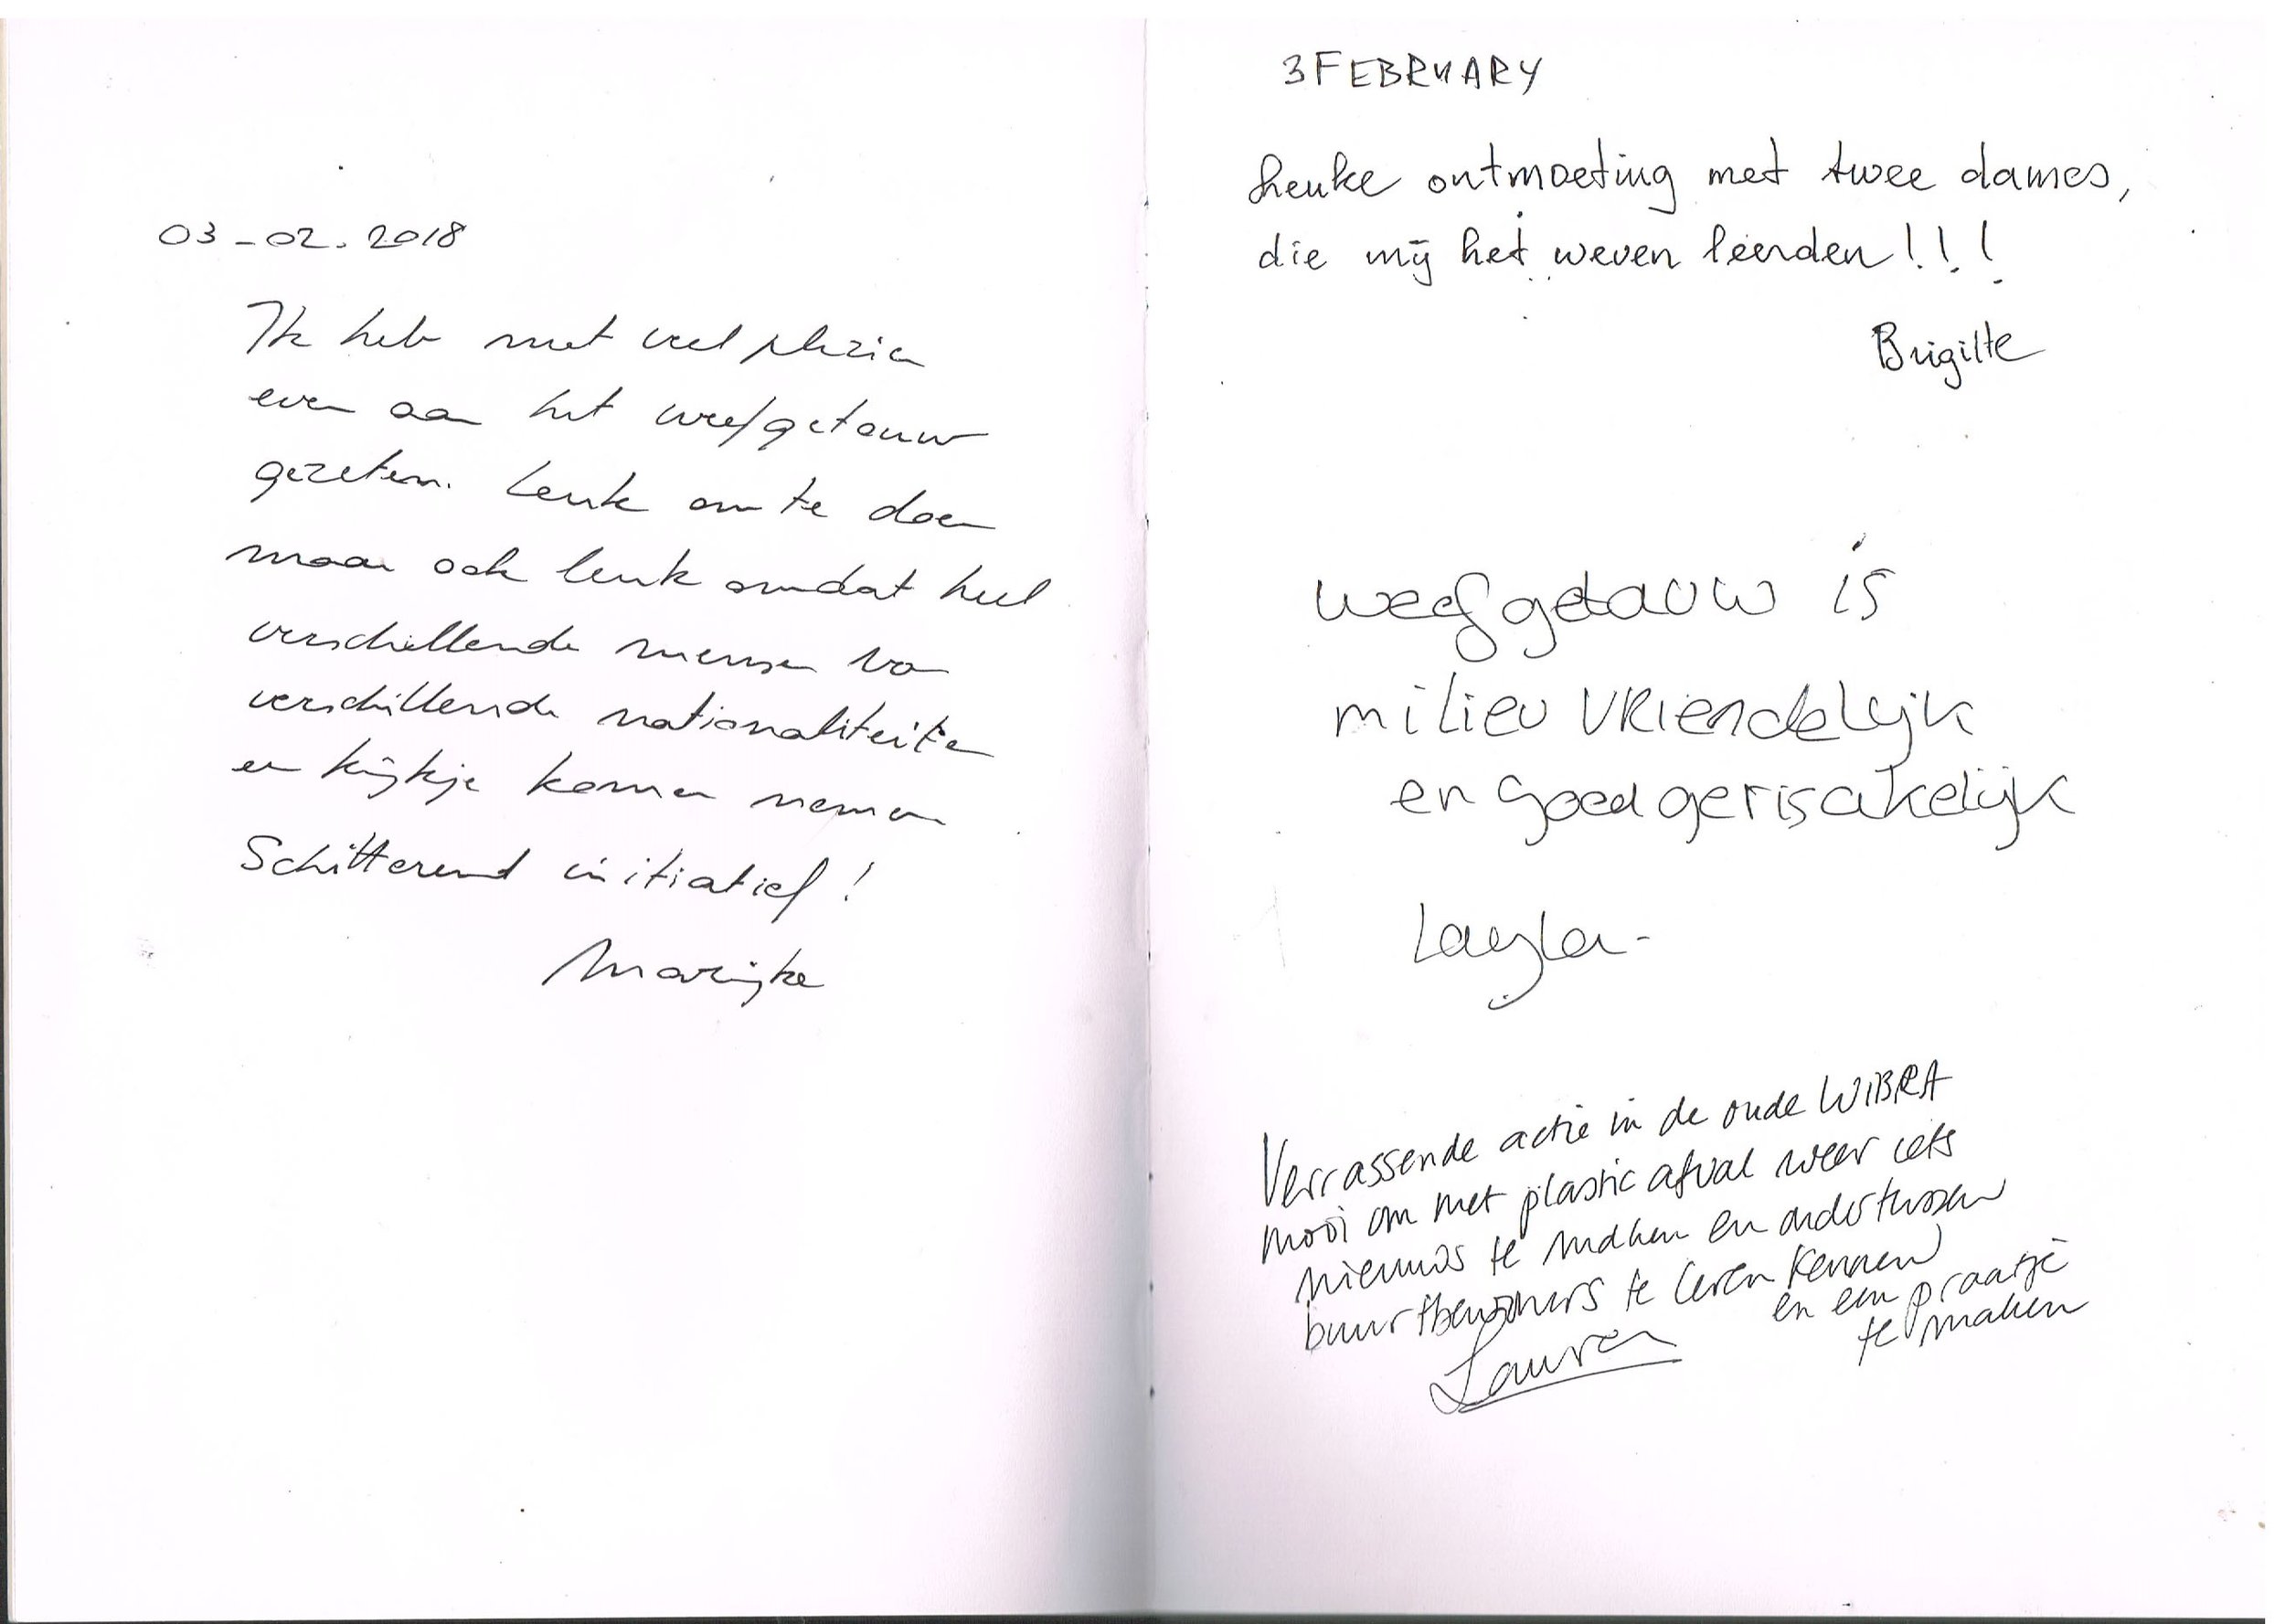 03-02.2018
Ik heb met veel plezier
even aan het weefgetouw
gezeten. Leuk om te doen
maar ook leuk omdat heel
verschillende mensen van
verschillende nationaliteiten
en kijkje komen nemen
Schitterend initiatief!
Marijke
3 FEBRUARY
Leuke ontmoeting met twee dames,
die mij het weven leerden!!!
Brigitte
weefgetouw is
milieu vriendelijk
en goed
Layla-
Verrassende actie in de oude WIBRA
mooi om met plastic afval weer iets
nieuws te maken en ondertussen
buurtbewoners te leren kennen
en een praatje
te maken
Lauren